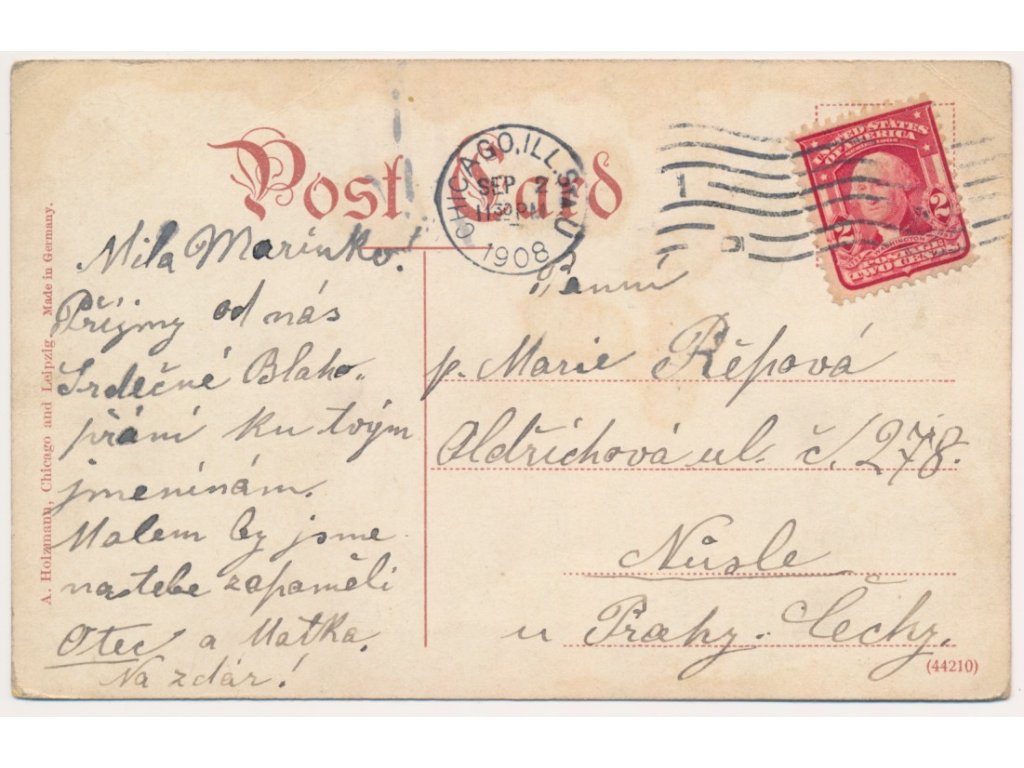 Post Card
CHICAGO, ILL. STA. U
SEP 2
11 30 PM
1908
UNITED STATES
OF AMERICA
2 2
WASHINGTON
POSTAGE
TWO CENTS
A. Holzmann, Chicago and Leipzig. Made in Germany.
Milá Marinko!
Příjmy od nás
Srdečné Blaho„
přání ku tvým
jmenínám.
Malem by jsme
na tebe zapaměli
Otec a Matka.
Na zdar!
Paní
p. Marie Řěpová
Oldřichová ul. č. 278.
Núsle
u Prahy. Čechy.
(44210)